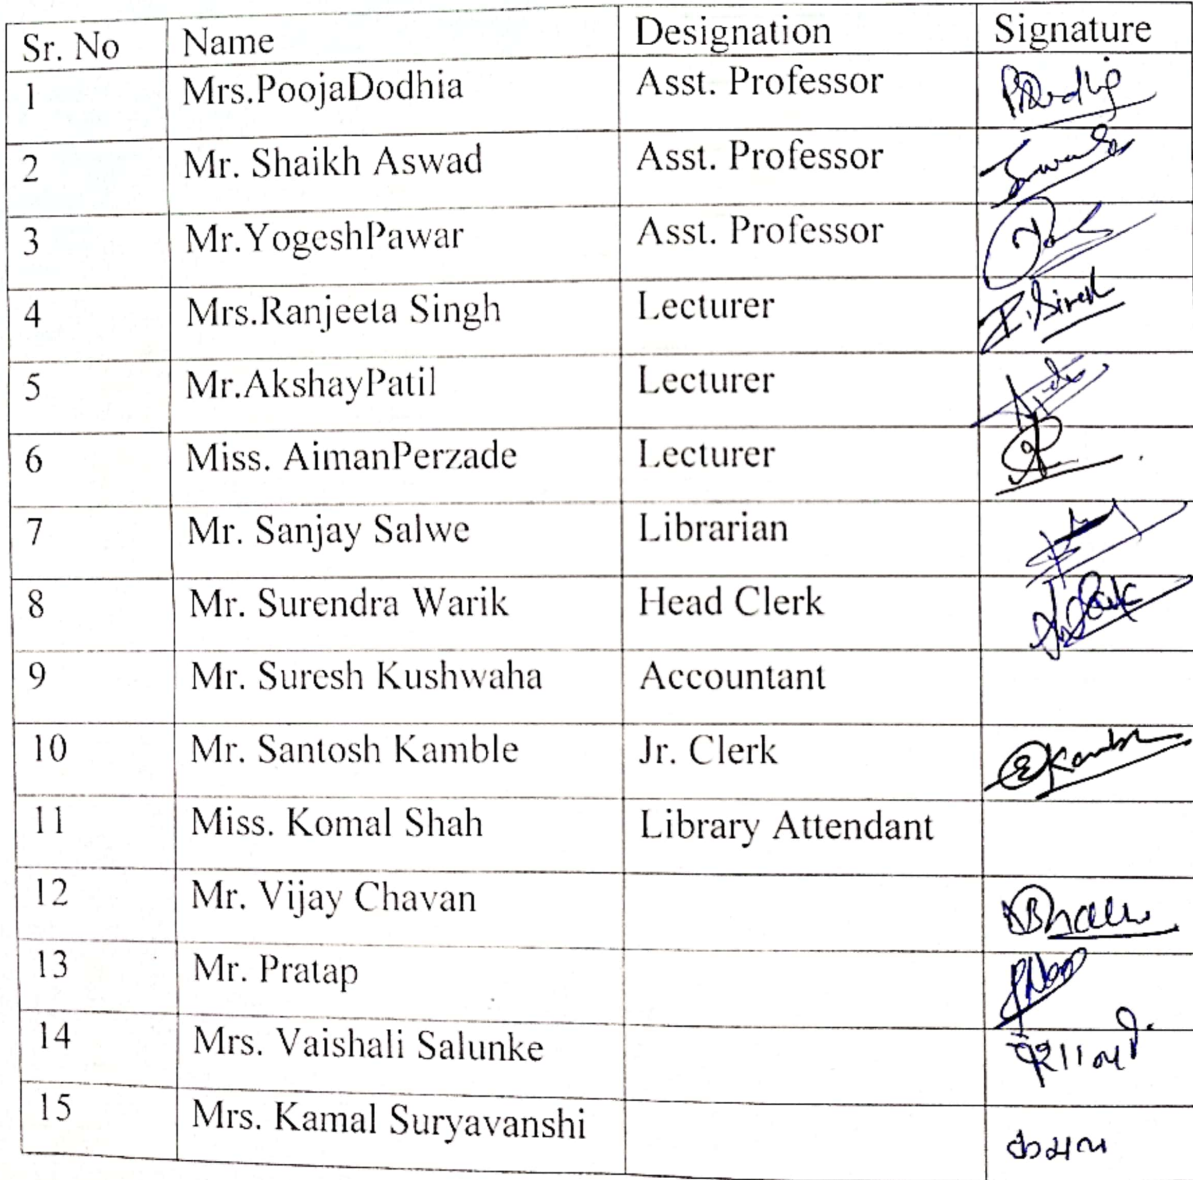 Sr. No Name Designation Signature
1 Mrs.PoojaDodhia Asst. Professor
2 Mr. Shaikh Aswad Asst. Professor
3 Mr.YogeshPawar Asst. Professor
4 Mrs.Ranjeeta Singh Lecturer
5 Mr.AkshayPatil Lecturer
6 Miss. AimanPerzade Lecturer
7 Mr. Sanjay Salwe Librarian
8 Mr. Surendra Warik Head Clerk
9 Mr. Suresh Kushwaha Accountant
10 Mr. Santosh Kamble Jr. Clerk
11 Miss. Komal Shah Library Attendant
12 Mr. Vijay Chavan
13 Mr. Pratap
14 Mrs. Vaishali Salunke
15 Mrs. Kamal Suryavanshi कमल